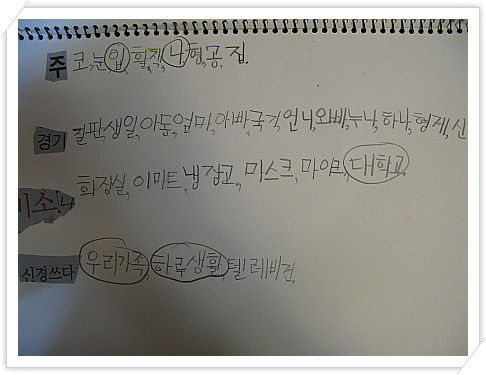 주 코, 눈, 입, 휠, 책, 나, 형, 공, 집,
경기 칠판, 생일, 아동, 엄마, 아빠, 국기, 언니, 오빠, 누나, 하나, 형제, 신
화장실, 이마트, 냉장고, 마스크, 마이크, 대학교,
미소, 나
신경쓰다 우리가족, 하루생활, 텔레비전,